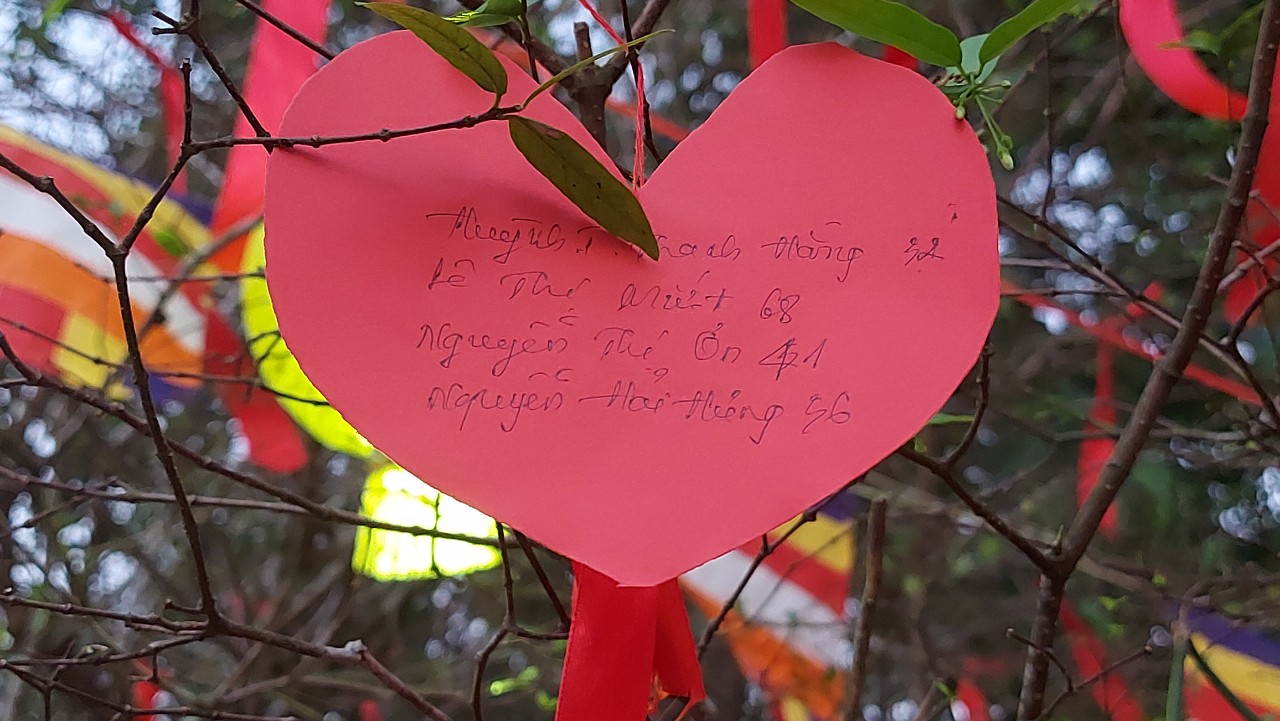 Huỳnh T. Thanh Hằng 52
Lê Thị Mứt 68
Nguyễn Thị Ổn 41
Nguyễn Hải Hưng 56